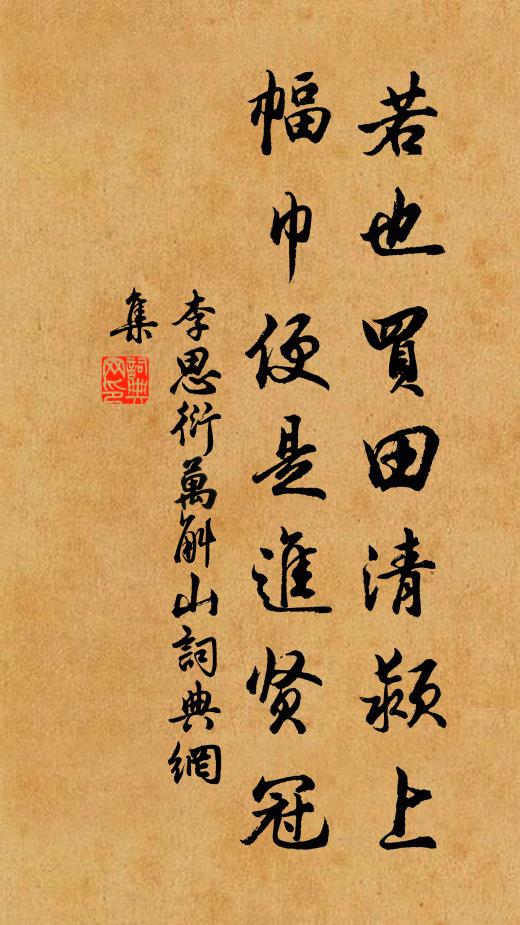 若也買田清潁上
幅巾便是進贤冠
李思衍萬斛山詞典網
集
詞典
网印